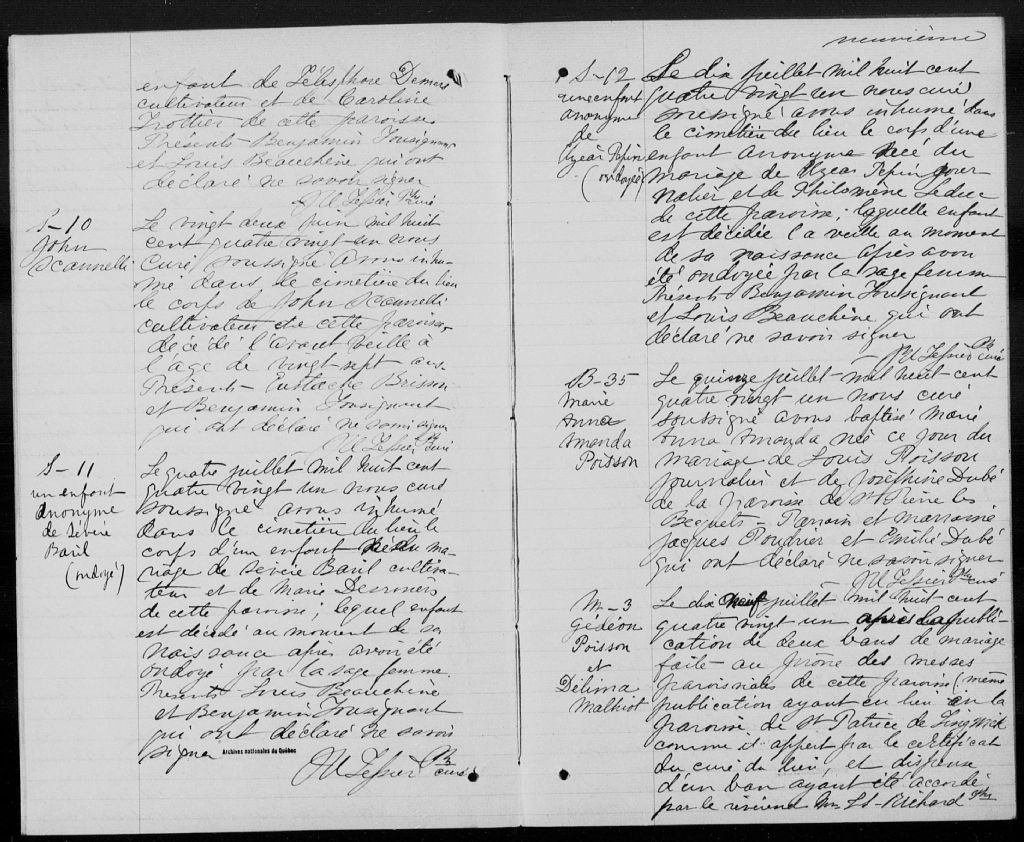 enfant de Télesphore Demers
cultivateur et de Caroline
Trottier de cette paroisse
Présents Benjamin Tousignant
et Louis Beauchène qui ont
déclaré ne savoir signer
M Tessier Ptre curé
S-10
John
Scannelli
Le vingt deux juin mil huit
cent quatre vingt un nous
curé soussigné avons inhu-
mé dans le cimetière du lieu
le corps de John Scannelli
cultivateur de cette paroisse
décédé l'avant veille à
l'âge de vingt sept ans
Présents Eustache Brisson
et Benjamin Tousignant
qui ont déclaré ne savoir signer
M Tessier Ptre curé
S-11
un enfant
anonyme
de Sévère
Baril
(ondoyé)
Le quatre juillet mil huit cent
quatre vingt un nous curé
soussigné avons inhumé
dans le cimetière du lieu le
corps d'un enfant né du ma-
riage de Sévère Baril cultiva-
teur et de Marie Desrosiers
de cette paroisse; lequel enfant
est décédé au moment de sa
naissance après avoir été
ondoyé par la sage femme.
Présents Louis Beauchène
et Benjamin Tousignant
qui ont déclaré ne savoir
signer
Archives nationales du Québec
M Tessier Ptre
curé
neuvième
S-12
une enfant
anonyme
de
Pepin
(ondoyée)
Le dix juillet mil huit cent
quatre vingt un nous curé
soussigné avons inhumé dans
le cimetière du lieu le corps d'une
enfant anonyme née du
mariage de Pepin jour
nalier et de Philomène Leduc
de cette paroisse; laquelle enfant
est décédée la veille au moment
de sa naissance après avoir
été ondoyée par la sage femme
Présents Benjamin Tousignant
et Louis Beauchène qui ont
déclaré ne savoir signer
M Tessier Ptre curé
B-35
Marie
Anna
Amanda
Poisson
Le quinze juillet mil huit cent
quatre vingt un nous curé
soussigné avons baptisé Marie
Anna Amanda née ce jour du
mariage de Louis Poisson
journalier et de Joséphine Dubé
de la paroisse de St Pierre les
Becquets - Parrain et marraine
Jacques Poudrier et Emilie Dubé
qui ont déclaré ne savoir signer
M Tessier Ptre curé
M-3
Gédéon
Poisson
et
Délima
Malhiot
Le dix neuf juillet mil huit cent
quatre vingt un après la publi-
cation de deux bans de mariage
faite au prône des messes
paroissiales de cette paroisse (même
publication ayant eu lieu en la
paroisse de St. Patrice de Tingwick
comme il appert par le certificat
du curé du lieu, et dispense
d'un ban ayant été accordé
par le révérend Mr Ls-Richard Ptre